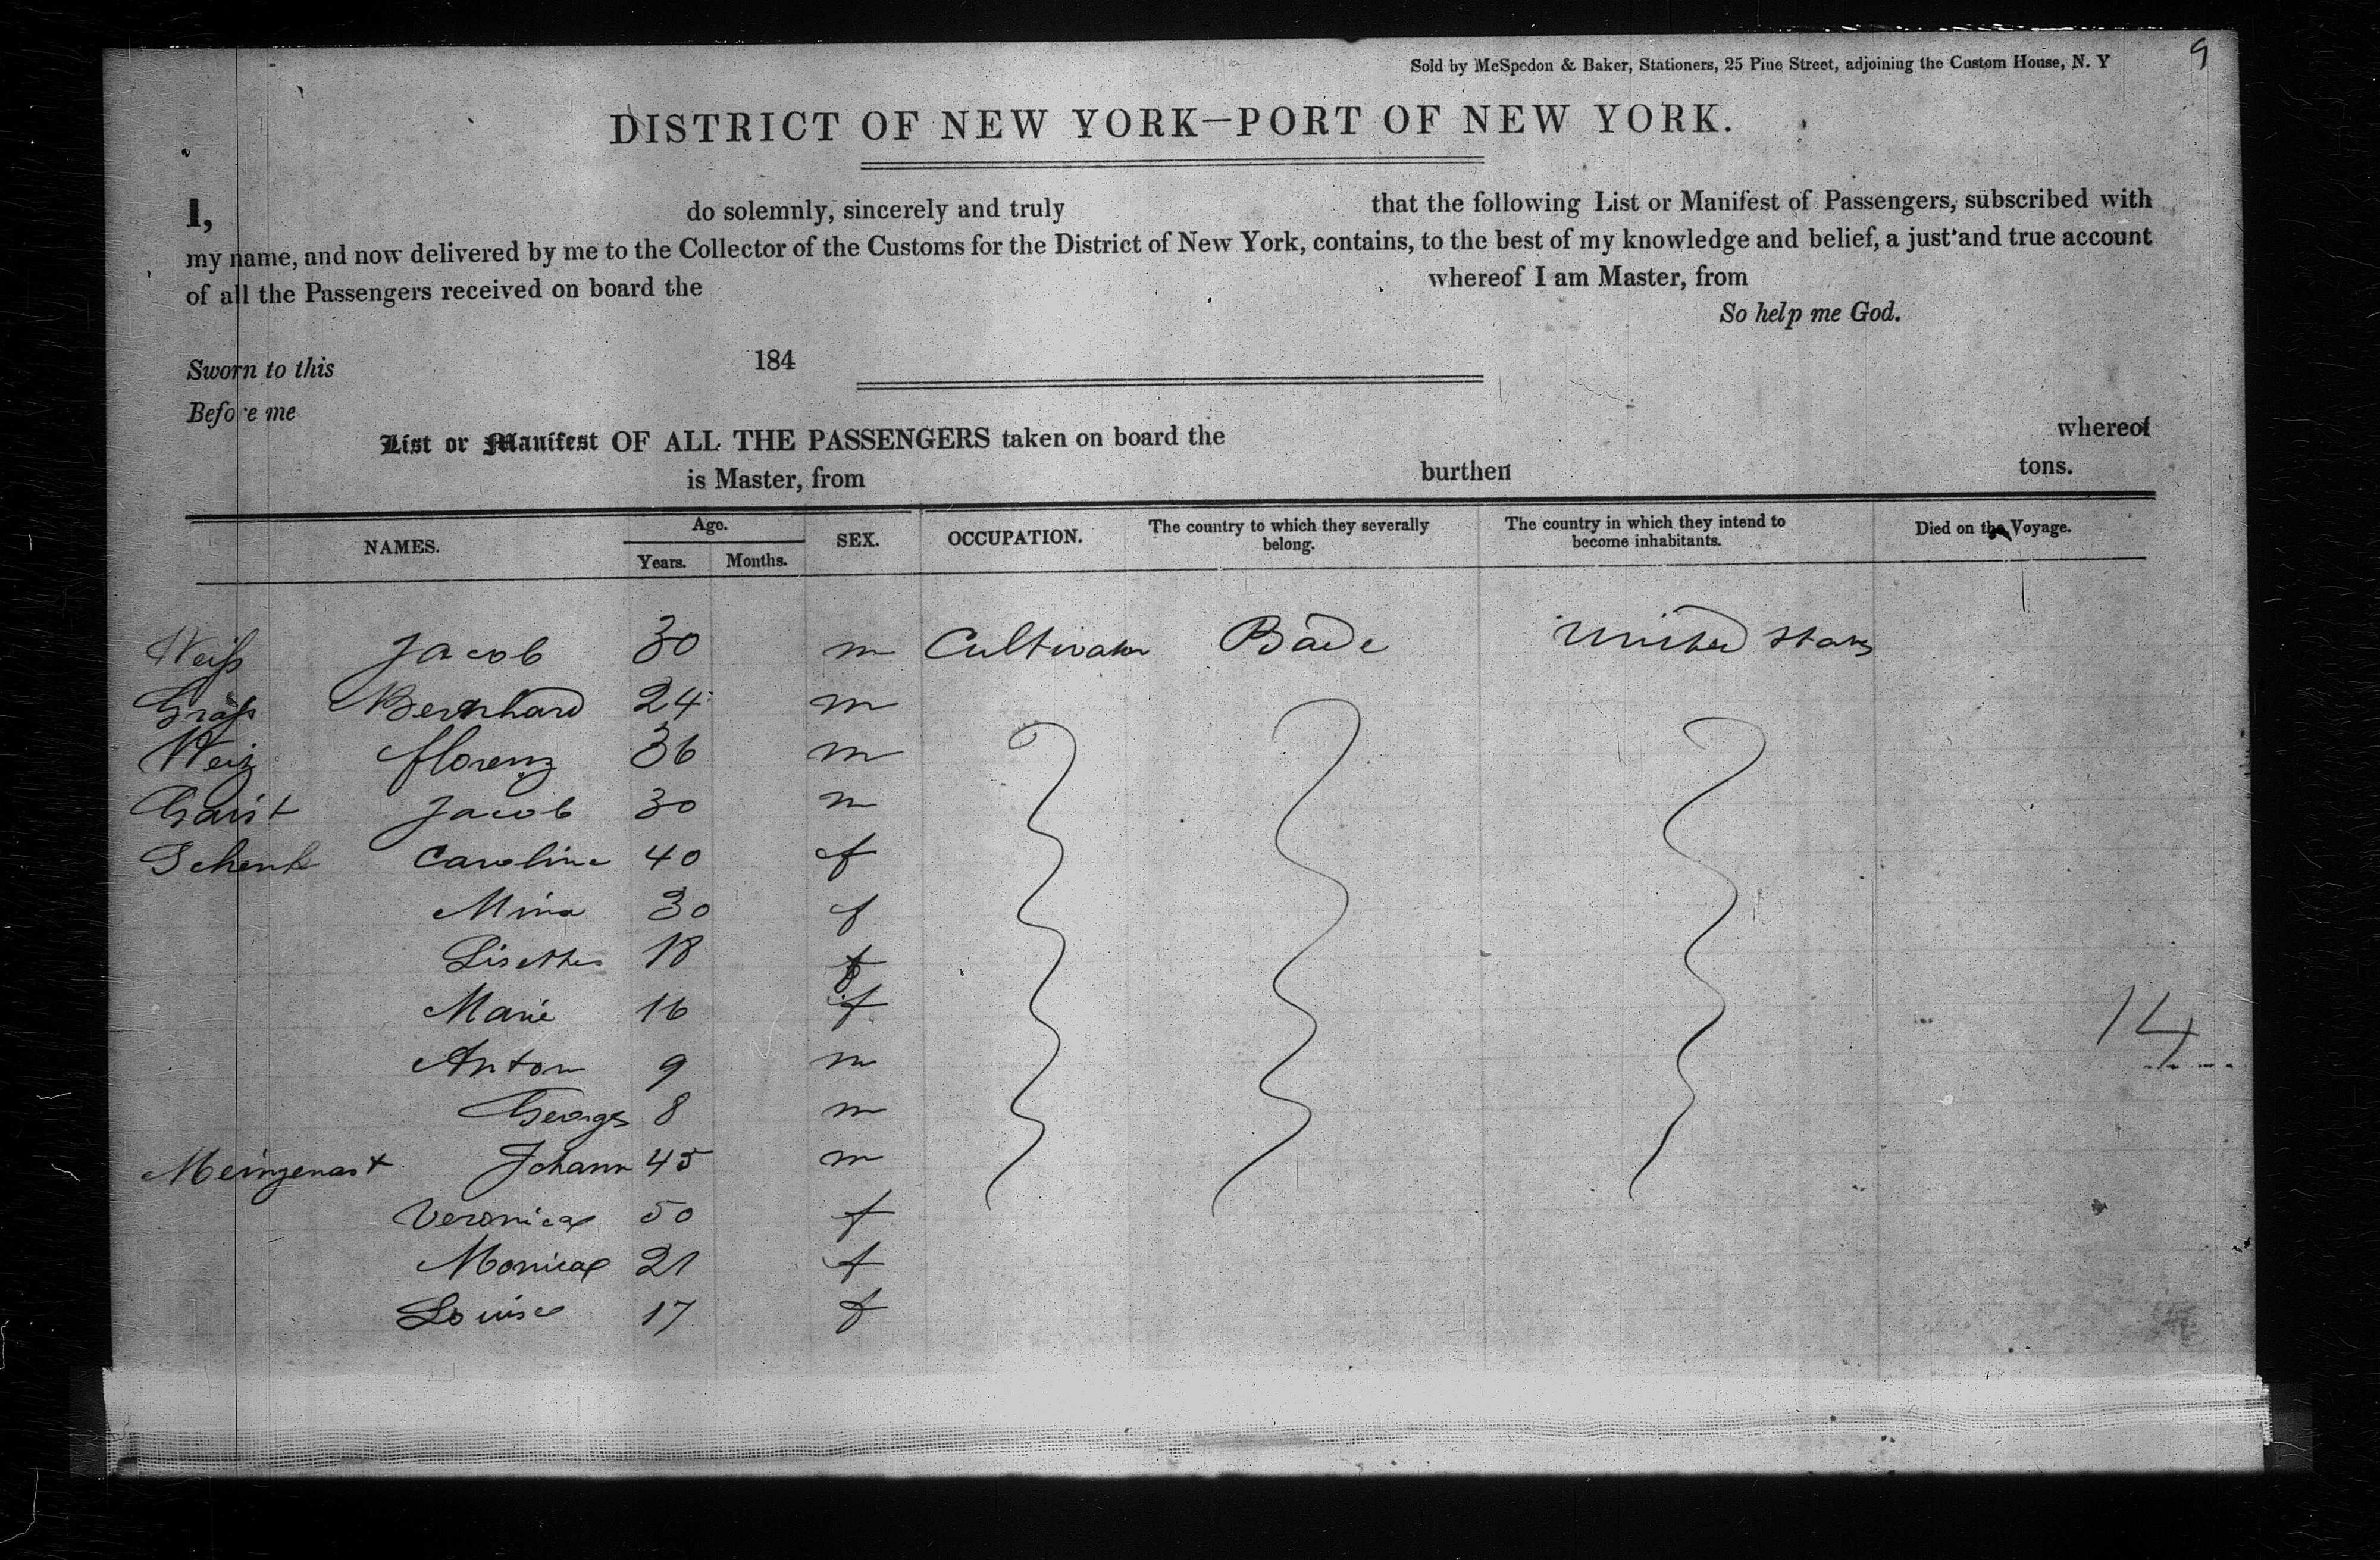 9
Sold by McSpedon & Baker, Stationers, 25 Pine Street, adjoining the Custom House, N. Y
DISTRICT OF NEW YORK—PORT OF NEW YORK.
I, do solemnly, sincerely and truly that the following List or Manifest of Passengers, subscribed with
my name, and now delivered by me to the Collector of the Customs for the District of New York, contains, to the best of my knowledge and belief, a just and true account
of all the Passengers received on board the whereof I am Master, from
So help me God.
Sworn to this 184
Before me
List or Manifest OF ALL THE PASSENGERS taken on board the whereof
is Master, from burthen tons.
NAMES. Age. Years. Months. SEX. OCCUPATION. The country to which they severally belong. The country in which they intend to become inhabitants. Died on the Voyage.
Weiß Jacob 30 m Cultivator Bade United States
Gräß Bernhard 24 m
Weiz florenz 36 m
Gaist Jacob 30 m
Schenk Caroline 40 f
Mina 30 f
Lisette 18 f
Marie 16 f
14
Anton 9 m
George 8 m
Meinzenast Johann 45 m
Veronica 50 f
Monica 21 f
Louise 17 f